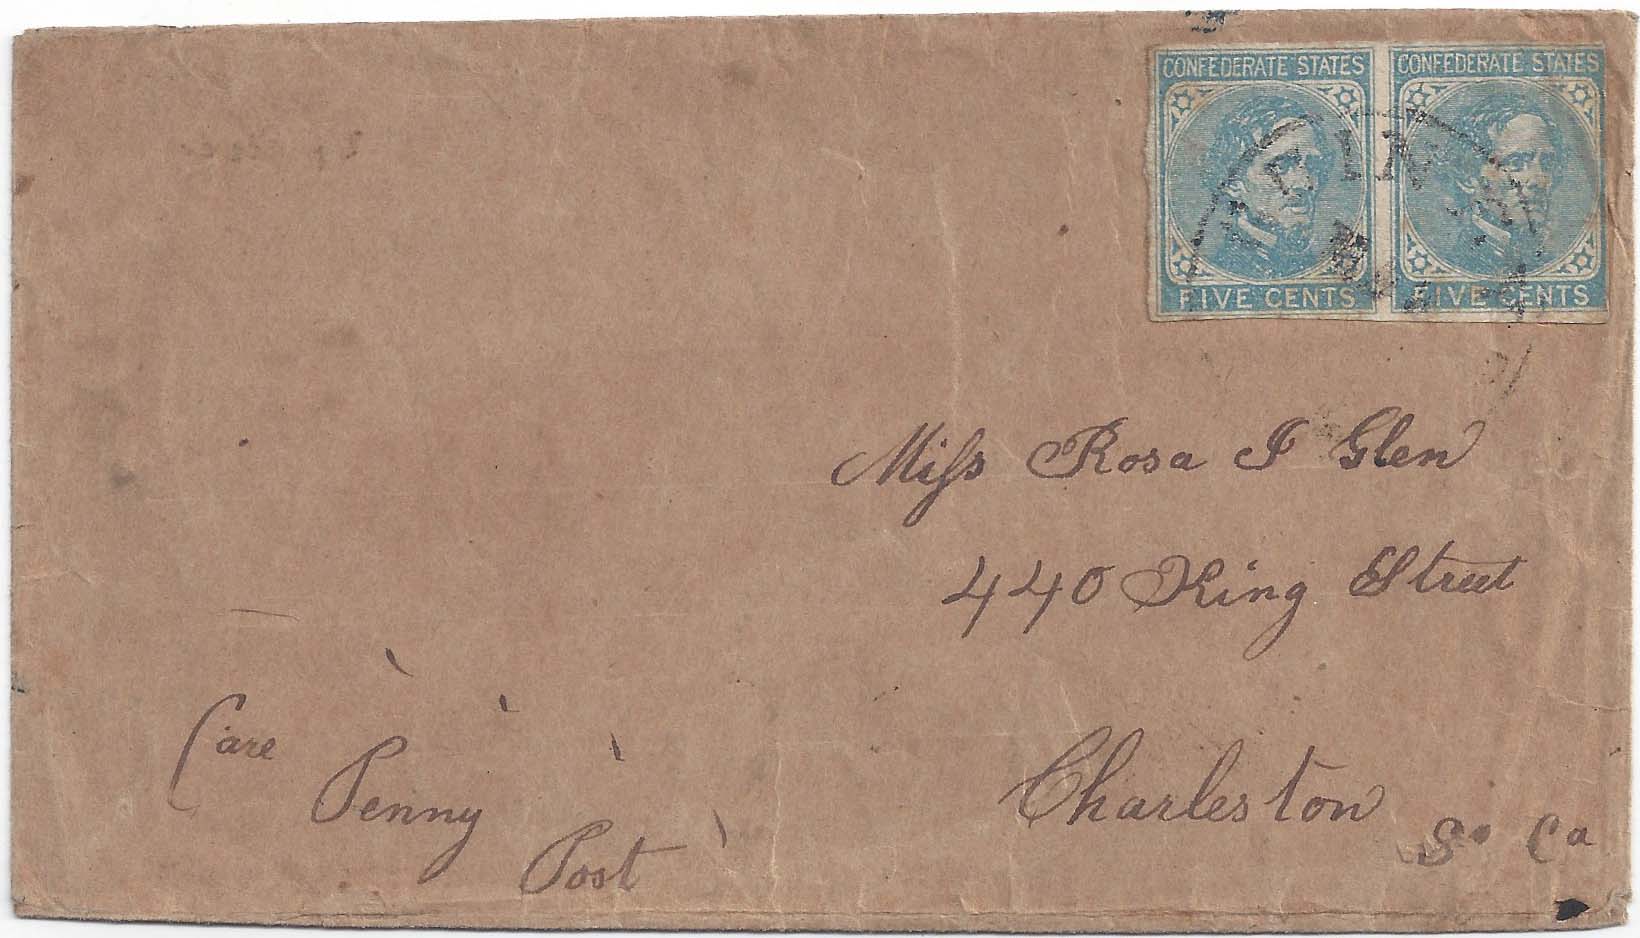 CONFEDERATE STATES CONFEDERATE STATES
FIVE CENTS FIVE CENTS
Miſs Rosa I Glen
440 King Street
Charleston
So Ca
Care
Penny
Post